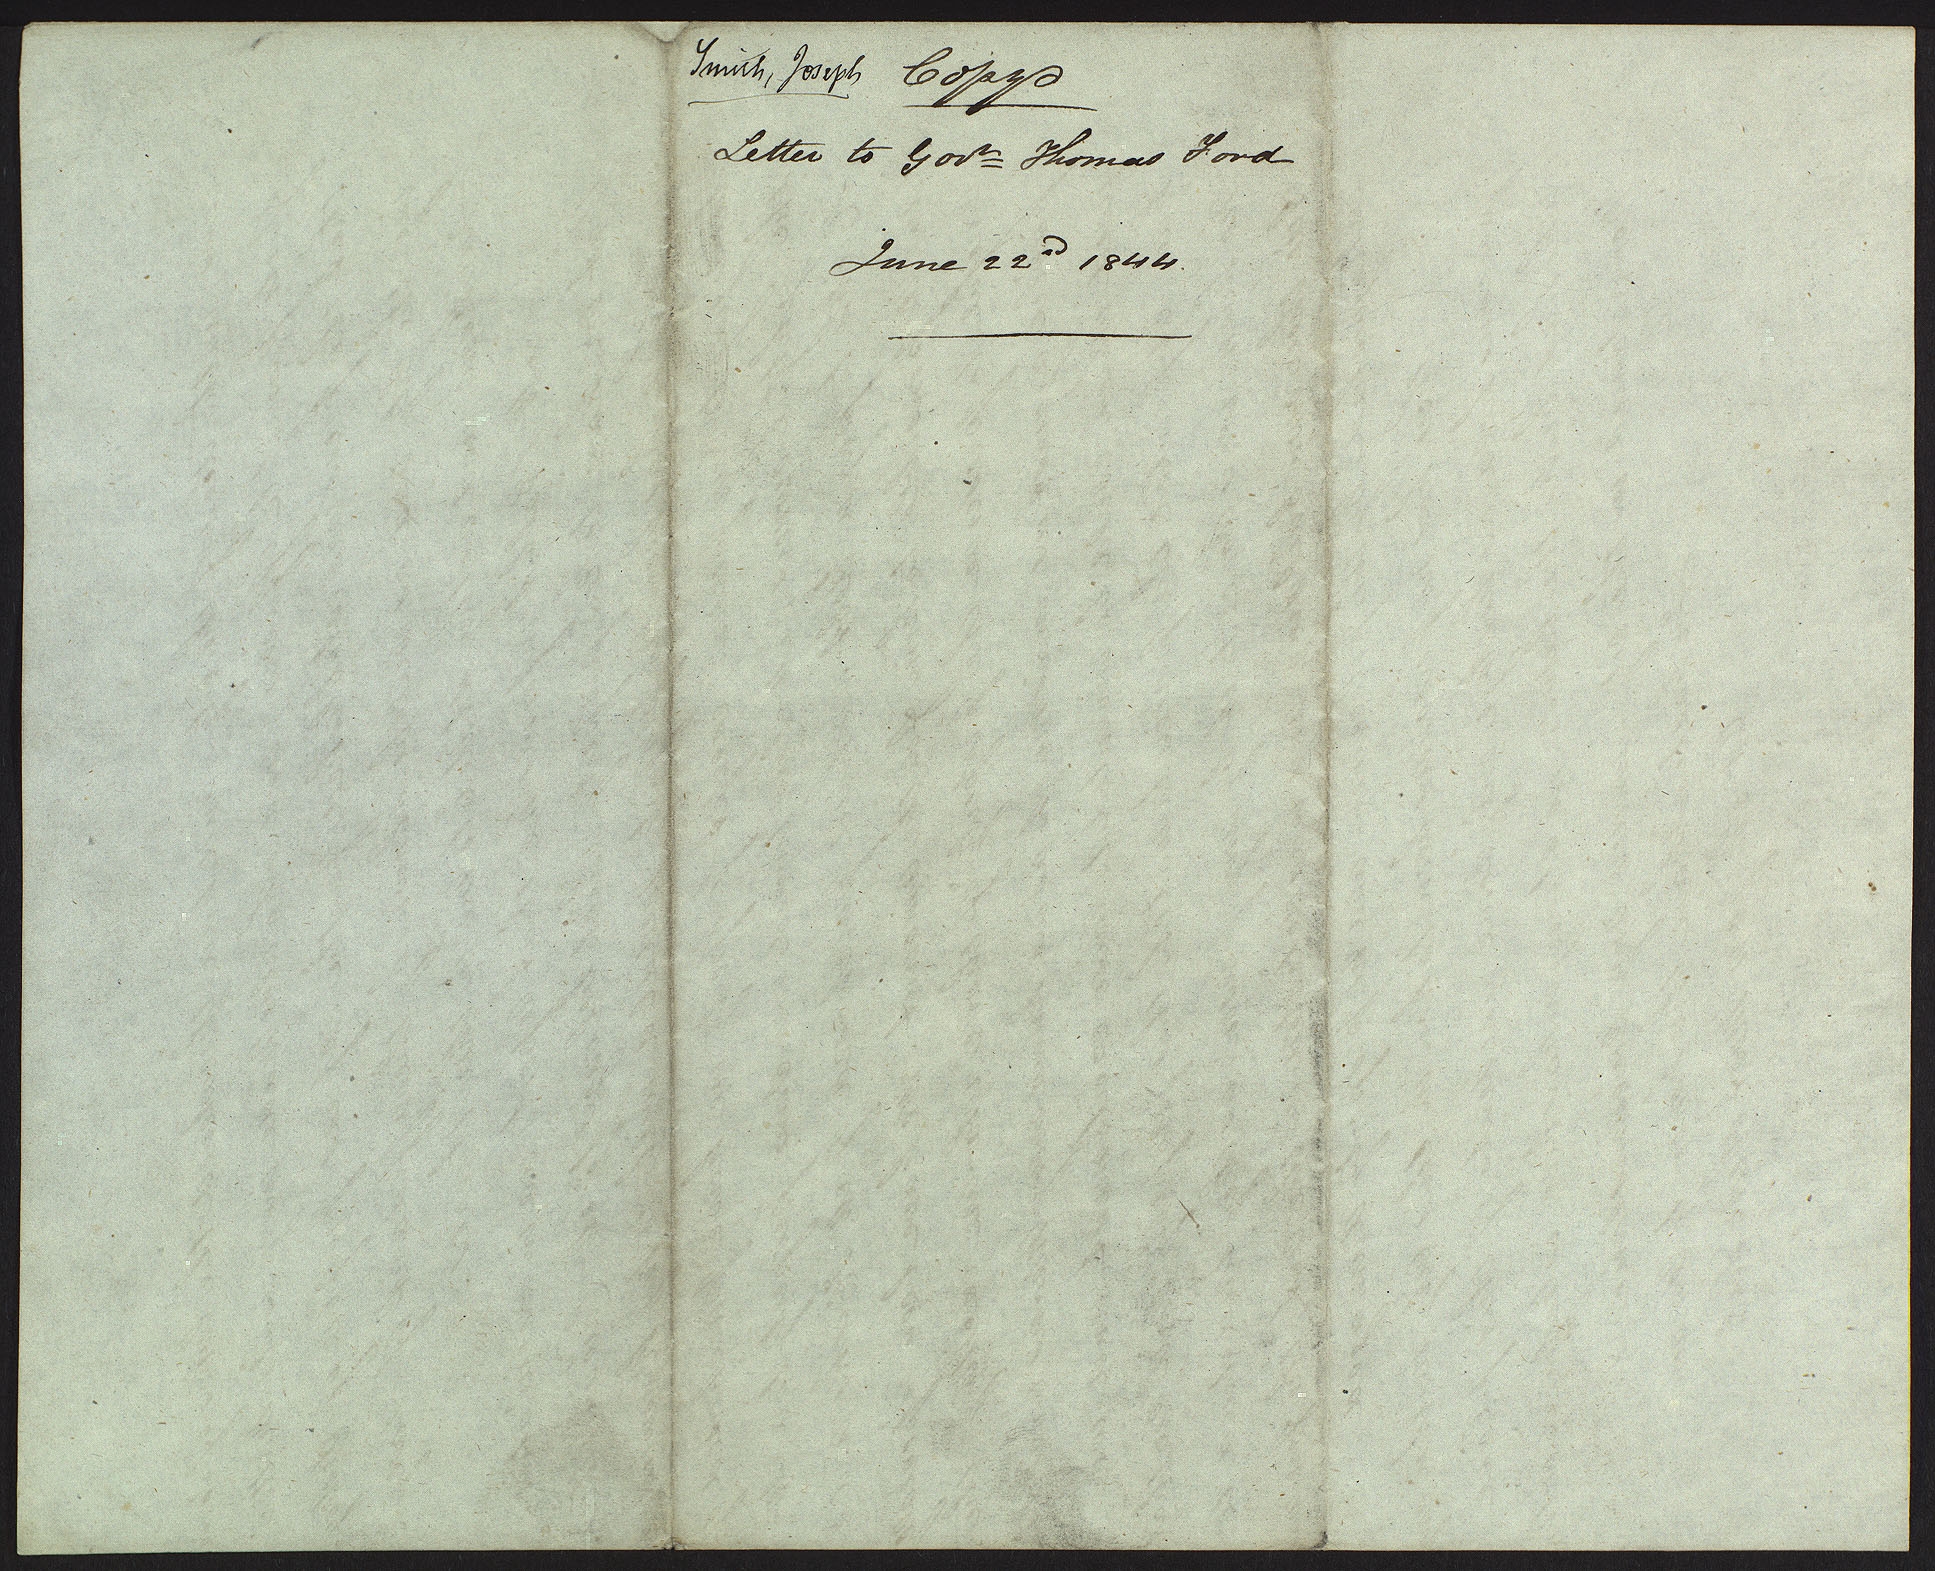 Smith, Joseph Copy
Letter to Govr Thomas Ford
June 22nd 1844.